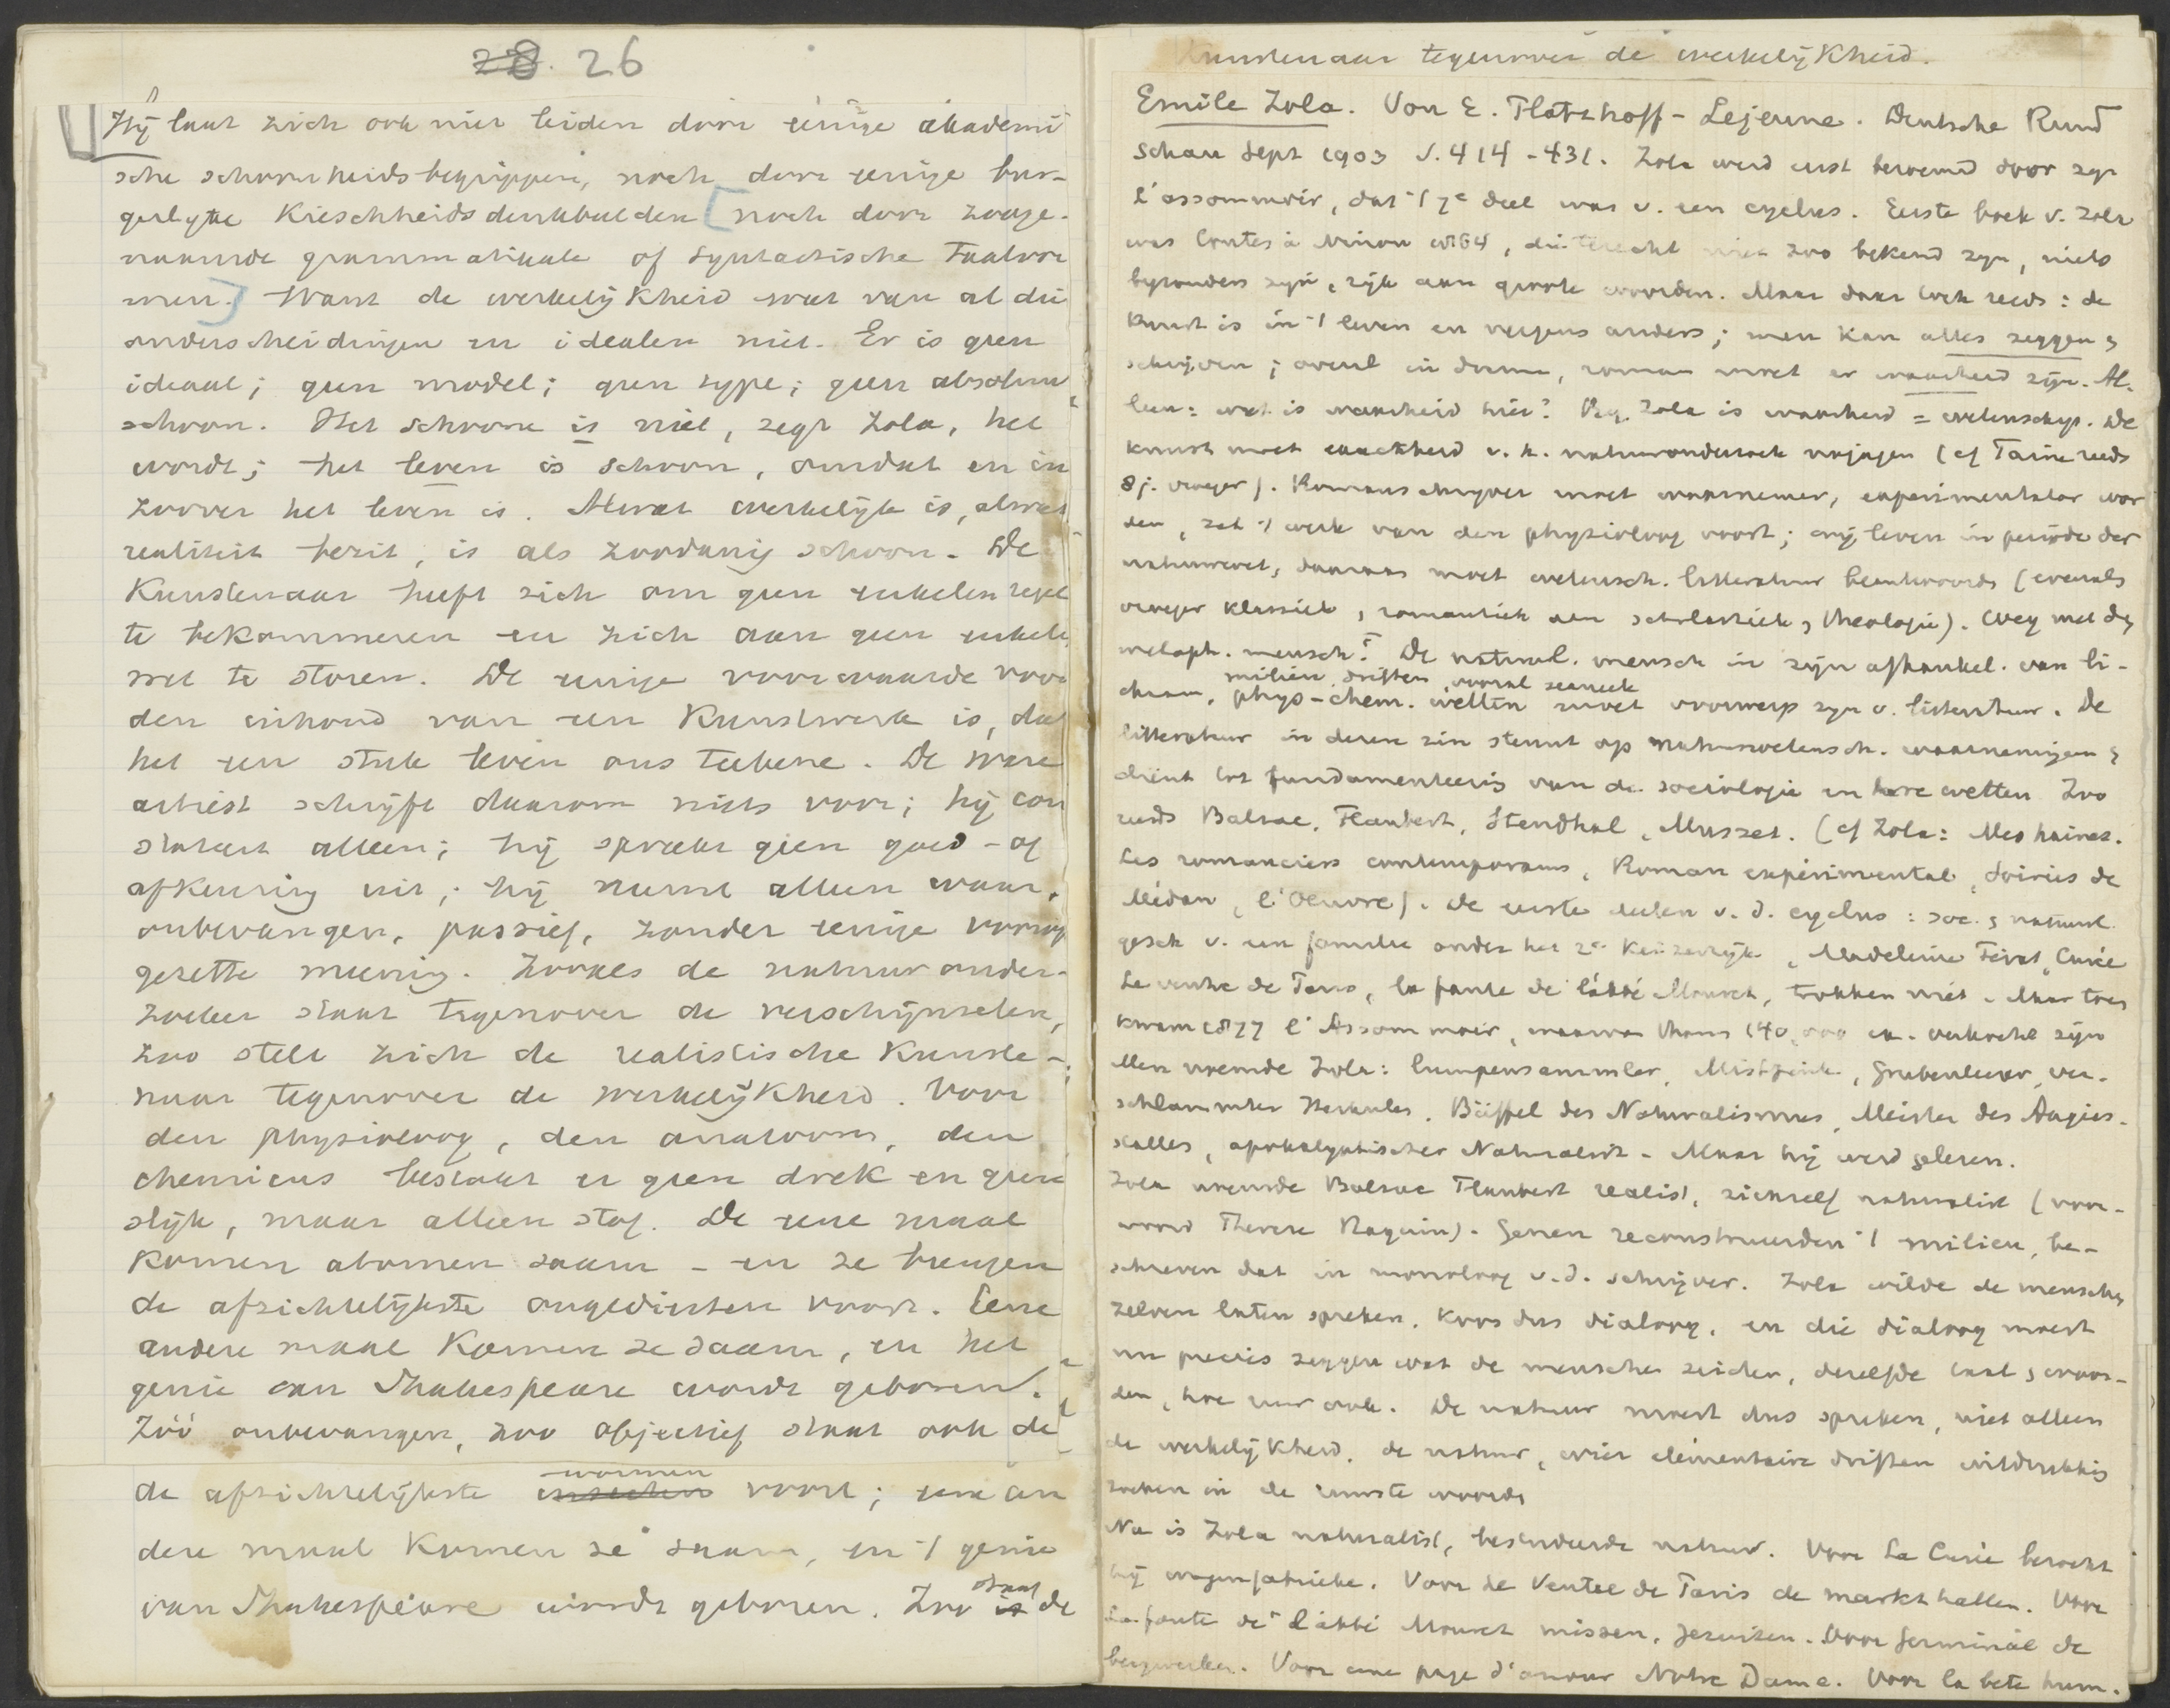 28. 26
Hij laat zich ook niet leiden door eenige akademi
sche schoonheidsbegrippen, noch door eenige bur-
gerlijke Kieschheidsdenkbeelden [noch door zooge-
naamde grammatikale of syntactische Taalvor
men.] Want de werkelijkheid weet van al die
onderscheidingen en idealen niet. Er is geen
ideaal; geen model; geen type; geen absoluut
schoon. Het schoone is niet, zegt Zola, het
wordt; het leven is schoon, omdat en in
zoover het leven is. Alwat werkelijk is, alwat
realiteit bezit, is als zoodanig schoon. De
Kunstenaar heeft zich om geen enkelen regel
te bekommeren en zich aan geen enkele
wet te storen. De eenige voorwaarde voor
den inhoud van een Kunstwerk is, dat
het een stuk leven ons teekene. De ware
artiest schrijft daarom niets voor; hij con
stateert alleen; hij spreekt geen goed- of
afkeuring uit; hij neemt alleen waar,
onbevangen, passief, zonder eenige vooraf
gezette meening. Zooals de natuuronder-
zoeker staat tegenover de verschijnselen,
zoo stelt zich de realistische Kunste-
naar tegenover de werkelijkheid. Voor
den physioloog, den anatoom, den
chemicus bestaat er geen drek en geen
slijk, maar alleen stof. De eene maal
komen atomen saam - en ze brengen
de afzichtelijkste ongedierten voort. Eene
andere maal komen ze saam, en het
genie van Shakespeare wordt geboren.
Zóó onbevangen, zoo objectief staat ook de
de afzichtelijkste insecten wormen voort; een an
dere maal komen ze saam, en 't genie
van Shakespeare wordt geboren. Zoo is staat de
Kunstenaar tegenover de werkelijkheid.
Emile Zola. Von E. Platzhoff-Lejeune. Deutsche Rund
schau Sept 1903 S. 414-431. Zola werd eerst beroemd door zijn
l'assommoir, dat 't 7e deel was v. een cyclus. Eerste boek v. Zola
was Contes à Ninon 1864, die terecht niet zoo bekend zijn, niets
bijzonders zijn, rijk aan groote woorden. Maar daar ook reeds: de
Kunst is in 't leven en nergens anders; men kan alles zeggen &
schrijven; overal in drama, roman moet er waarheid zijn. Al-
leen: wat is waarheid hier? Vlg. Zola is waarheid = wetenschap. De
kunst moet exactheid v. h. natuuronderzoek najagen (cf Taine reeds
8 j. vroeger). Romanschrijver moet waarnemer, experimentator wor
den, zet 't werk van den physioloog voort; wij leven in periode der
natuurwet, daaraan moet wetensch. litteratuur beantwoorden (evenals
vroeger klassiek, romantiek aan scholastiek & theologie). Weg met den
metaph. mensch! De natuurl. mensch in zijn afhankel. van li-
milieu, driften, vooral sexueele
chaam, phys-chem. wetten moet voorwerp zijn v. litteratuur. De
litteratuur in dezen zin steunt op natuurwetensch. waarnemingen &
dient tot fundamenteering van de sociologie en hare wetten. Zoo
reeds Balzac, Flaubert, Stendhal, Musset. (cf Zola: Mes haines.
Les romanciers contemporains, Roman expérimental, Soirées de
Médan, l'Oeuvre). De eerste deelen v. d. cyclus: soc. & natuurl.
gesch v. een familie onder het 2e Keizerrijk, Madeleine Férat, Curée
Le ventre de Paris, la faute de l'abbé Mouret, trokken niet. Maar toen
kwam 1877 l'Assommoir, waarvan thans 140,000 ex. verkocht zijn
Men noemde Zola: Lumpensammler, Mistfink, Grubenleerer, ver-
schlammter Herkules, Büffel des Naturalismus, Meister des Augias-
stalles, apokalyptischer Naturalist. Maar hij werd gelezen.
Zola noemde Balzac Flaubert realist, zichzelf naturalist (voor-
woord Therese Raquin). Genen reconstrueerden 't milieu, be-
schreven dat in monoloog v. d. schrijver. Zola wilde de menschen
zelven laten spreken, koos dus dialoog, en die dialoog moest
nu precies zeggen wat de menschen zeiden, dezelfde taal & woor-
den, hoe ruw ook. De natuur moest dus spreken, niet alleen
de werkelijkheid. de natuur, wier elementaire driften uitdrukking
zoeken in de ruwste woorden
Nu is Zola naturalist, bestudeerde natuur. Voor La Curée bezocht
hij wagenfabrieken. Voor Le Ventre de Paris de markthallen. Voor
La faute de l'abbé Mouret missen, jezuiten. Voor Germinal de
bergwerken. Voor une page d'amour Notre Dame. Voor la bete hum.